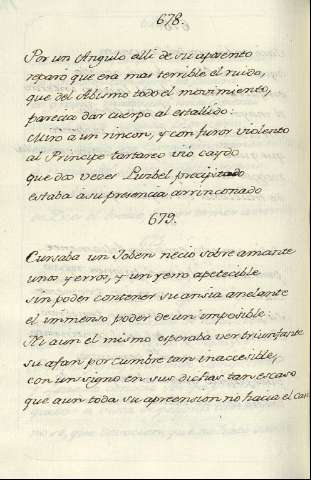 678.
Por un Angulo alli de su aposento
reparó que era mas terrible el ruido,
que del Abismo todo el movimiento,
parecia dar cuerpo al estallido:
Miró a un rincon, y con furor violento
al Principe tartareo vio caydo
que dos vezes Luzbel precipitado
estaba á su presencia arrinconado
679.
Cursaba un Joben necio sobre amante
unos yerros, y un yerro apetecible
sin poder contener su ansia anelante
el immenso poder de un imposible:
Ni aun el mismo esperaba ver triunfante
su afan por cumbre tan inaccesible,
con un signo en sus dichas tan escaso
que aun toda su aprension no hacia el caso